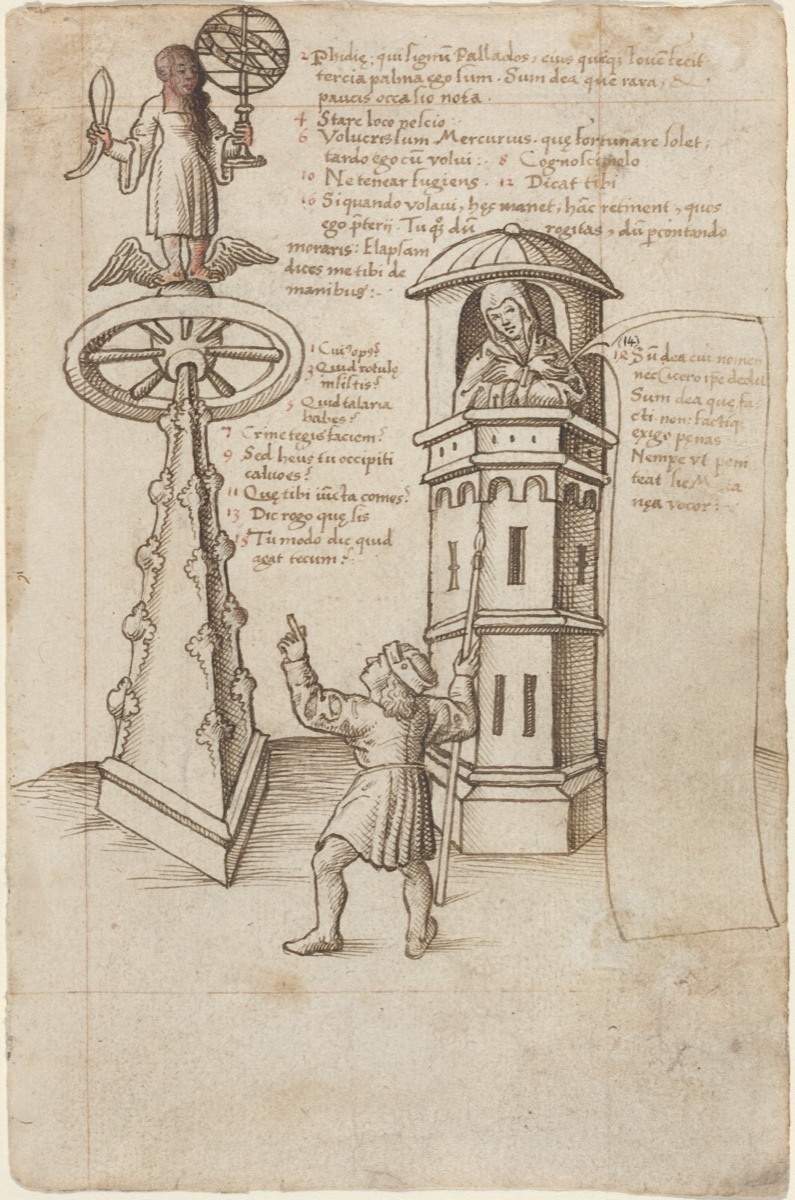 2 Phidię: qui signũ Pallados, eius quęq; Iouẽ fecit
tercia palma ego sum. Sum dea que rara,
paucis occasio nota.
4 Stare loco nescio:
6 Volucris sum Mercurius. quę fortunare solet,
tardo ego cũ volui: 8 Cognosci nelo
10 Ne tenear fugiens. 12 Dicat tibi
16 Si quando volaui, hęc manet, hãc retinent, quos
ego p̃terij. Tu q; dũ rogitas, dũ pcontando
moraris: Elapsam
dices me tibi de
manibus:
1 Cui9 ops?
3 Quid rotulę
insistis?
5 Quid talaria
habes?
7 Crine tegis faciem?
9 Sed heus tu occipiti
calues?
11 Quę tibi iũcta comes?
13 Dic rogo quę sis
15 Tu modo dic quid
agat tecum?
(14)
12 Sũ dea cui nomen
nec Cicero ipe dedit
Sum dea quę fa-
cti non factiq;
exigo penas
Nempe vt peni
teat sic
nęa vocor: